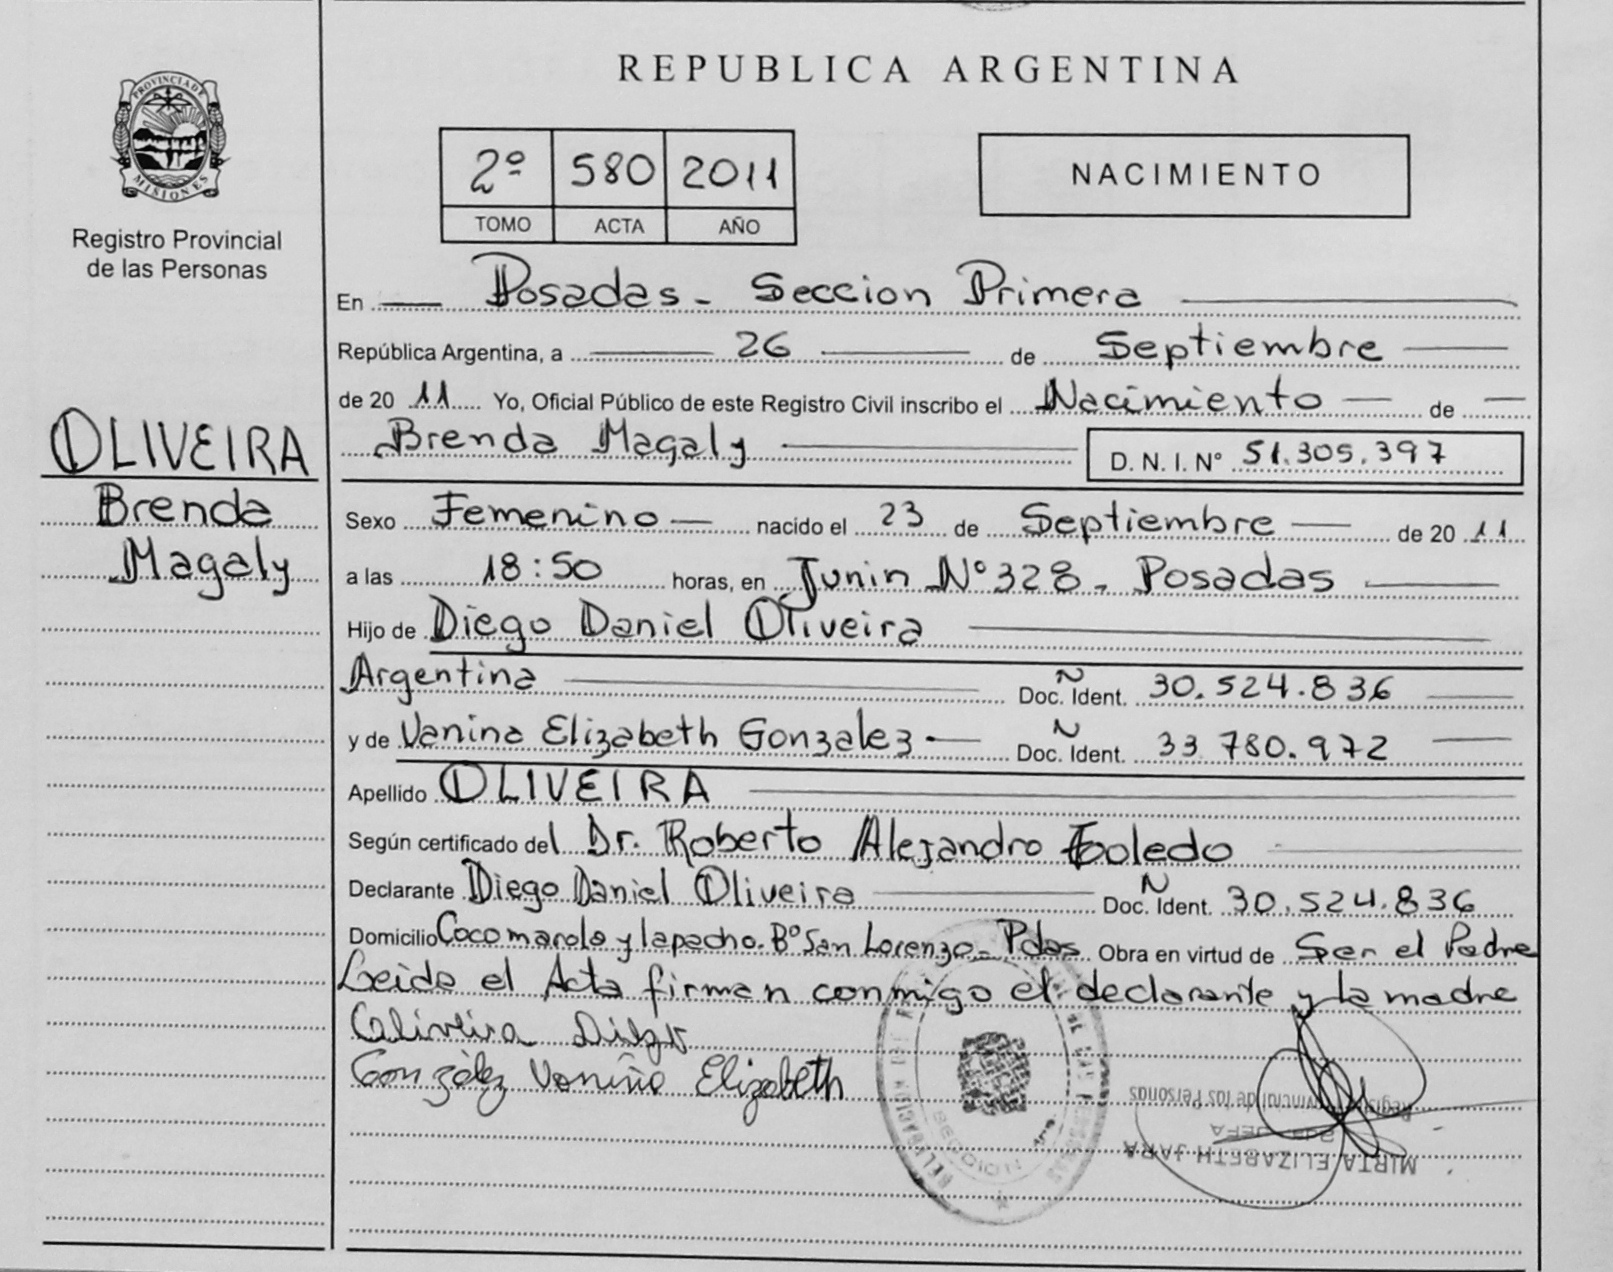 REPUBLICA ARGENTINA
PROVINCIA DE
MISIONES
Registro Provincial
de las Personas
2º 580 2011
TOMO ACTA AÑO
NACIMIENTO
En Posadas - Seccion Primera
República Argentina, a 26 de Septiembre
de 20 11 Yo, Oficial Público de este Registro Civil inscribo el Nacimiento de
Brenda Magaly D. N. I. Nº 51.305.397
OLIVEIRA
Brenda
Magaly
Sexo Femenino nacido el 23 de Septiembre de 20 11
a las 18:50 horas, en Junin Nº 328 - Posadas
Hijo de Diego Daniel Oliveira
Argentina Doc. Ident. 30.524.836
y de Vanina Elizabeth Gonzalez Doc. Ident. 33.780.972
Apellido OLIVEIRA
Según certificado del Dr. Roberto Alejandro Toledo
Declarante Diego Daniel Oliveira Doc. Ident. 30.524.836
Domicilio Cocomarola y lapacho. Bº San Lorenzo - Pdas Obra en virtud de Ser el Padre
Leida el Acta firman conmigo el declarante y la madre
Gonzalez Vanina Elizabeth
SECCION
MIRTA ELIZABETH JARA
JEFA
Registro Provincial de las Personas